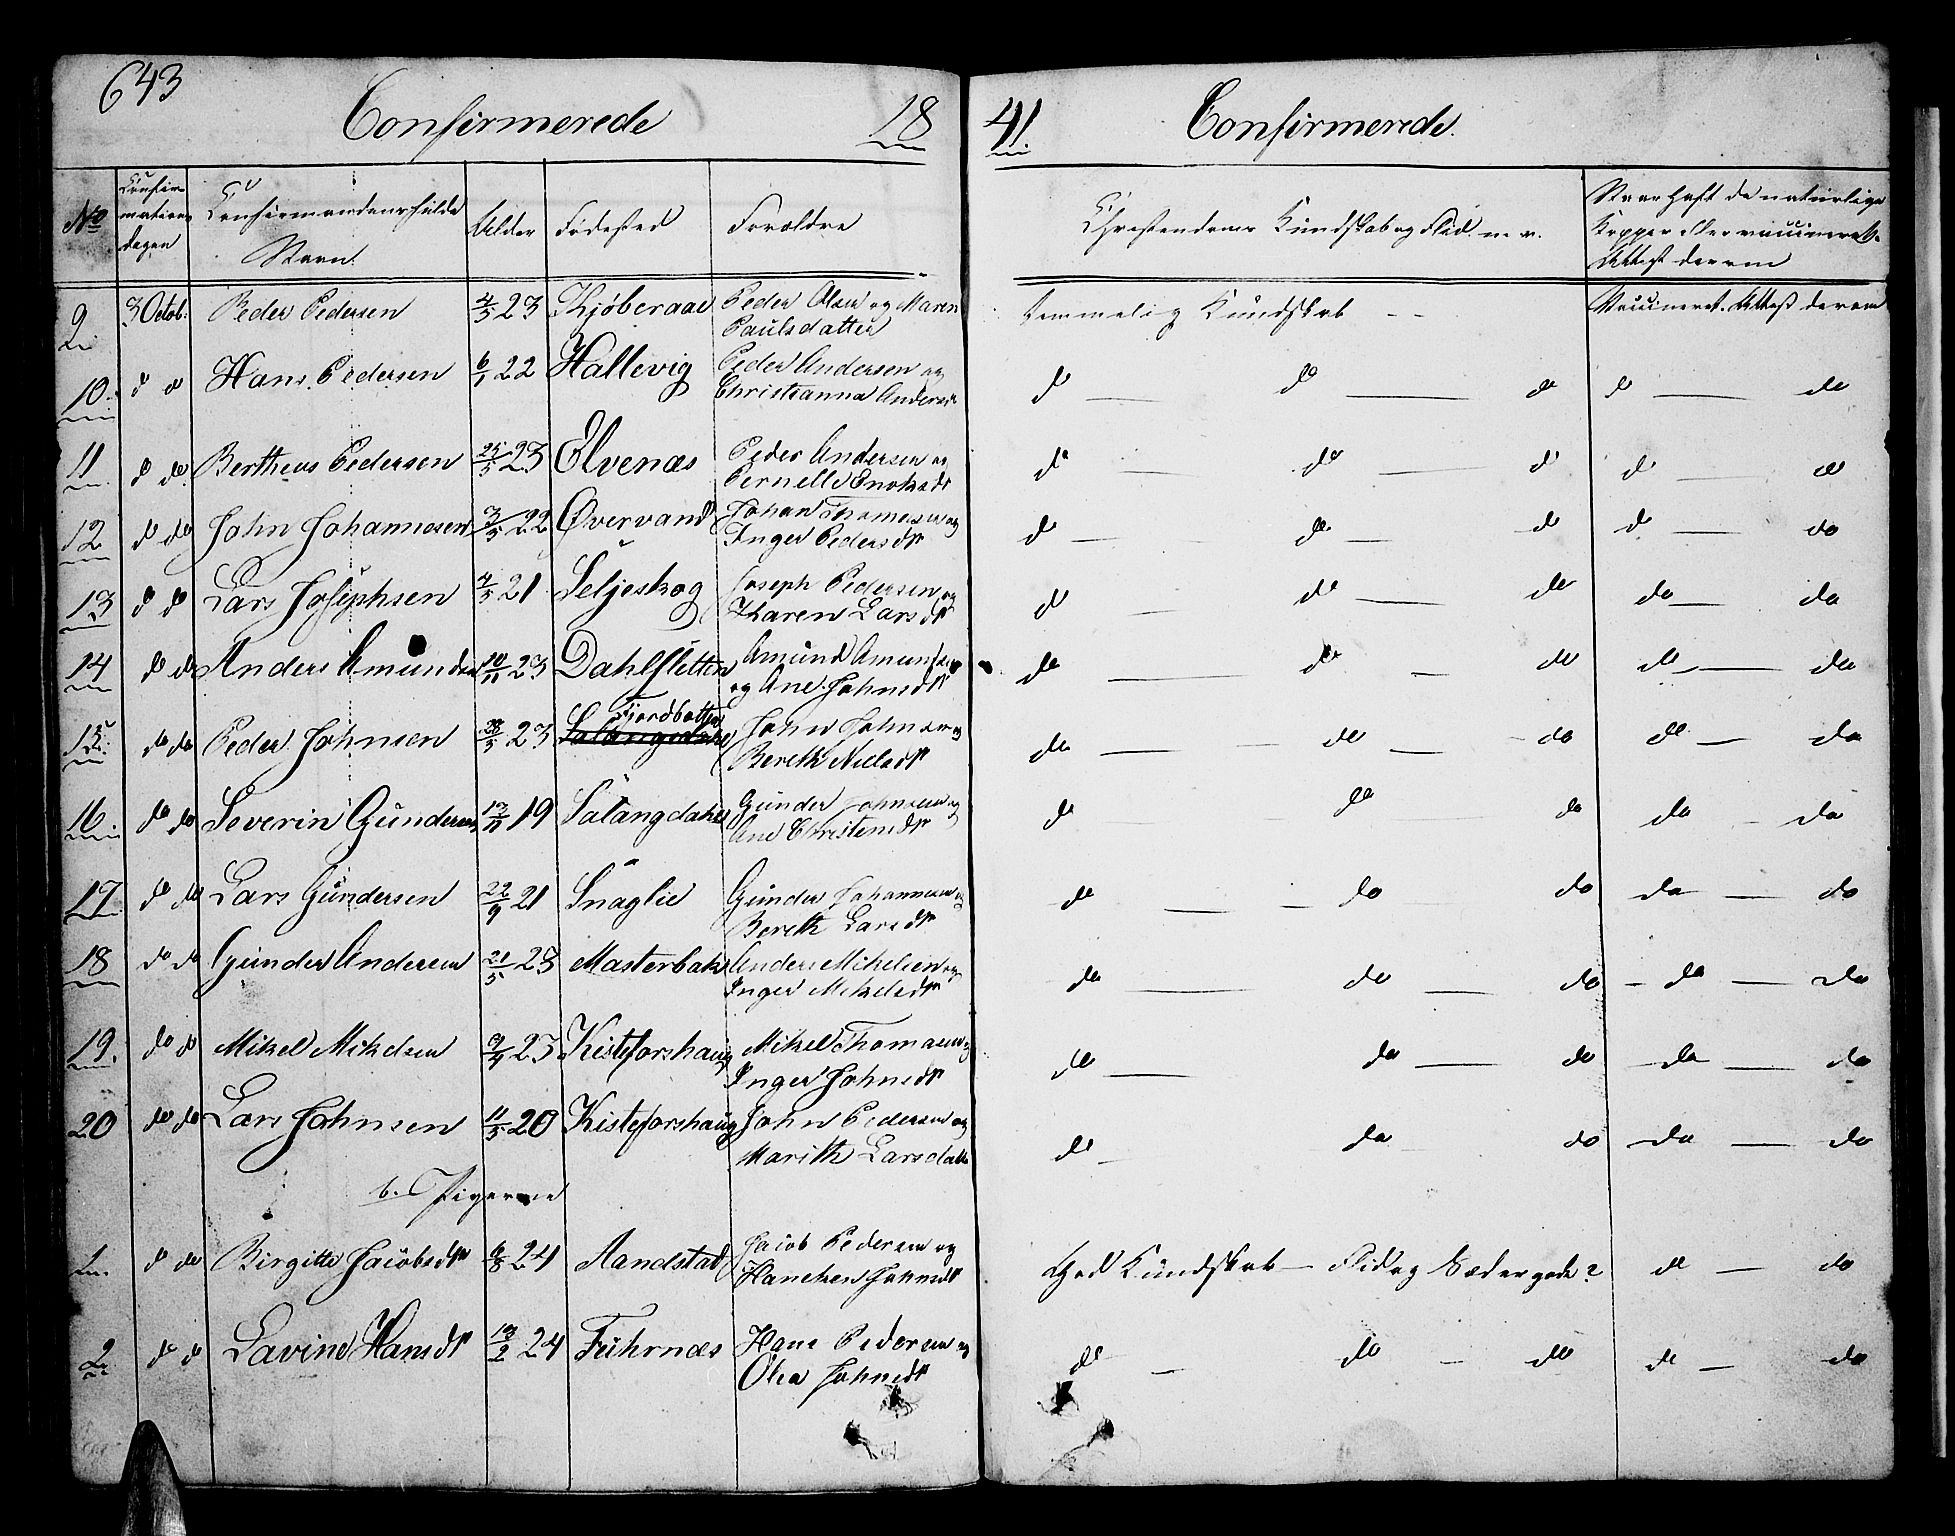 643
Confirmerede 18 41 Confirmerede.
No Confirmations dagen Confirmandens fulde Navn Alder Fødested Forældre Christendoms Kundskab og Flid m. v. Naar haft de naturlige Kopper eller vaccineret. Attest derom
9 3 Octob: Peder Pedersen 4/5 23 Kjøberaae Peder Olsen og Maren Temmelig Kundskab - - Vaccineret. Attest derom
Paulsdatter
10. do do Hans Pedersen 6/1 22 Hallevig Peder Andersen og do do do do do
Christianna Andersdr
11 do do Bertheus Pedersen 25/5 23 Elvenæs Peder Andersen og do do do do do
Pernelle Enoksdr
12 do do John Johannesen 3/5 22 Øvervand Johan Thomesen og do do do do do
Inger Pedersdr
13 do do Lars Josephsen 4/5 21 Seljeskog Joseph Pedersen og do do do do do
Karen Larsdr
14 do do Anders Amundsen 10/11 23 Dahlsletten Amund Amundsen do do do do do
og Ane Johnsdr
Fjordbotten
15 do do Peder Johnsen 28/5 23 Salangsdalen John Johnsen og do do do do do
Bereth Nielsdr
16. do do Severin Gundersen 13/11 19 Salangdalen Gunder Johnsen og do do do do do
Ane Christensdr
17 do do Lars Gundersen 22/9 21 Snaglie Gunder Johannesen og do do do do do
Bereth Larsdr
18 do do Gunder Andersen 21/5 23 Masterbak Anders Mikelsen og do do do do do
Inger Mikelsdr
19. do do Mikel Mikelsen 9/4 23 Kisteforshaug Mikel Thomasen og do do do do do
Inger Johnsdr
20 do do Lars Johnsen 11/5 20 Kisteforshaug John Pedersen og do do do do do
Marith Larsdatter
b. Pigerne
1. do do Birgitte Jacobsdr 6/8 24 Aandstad Jacob Pedersen og God Kundskab - Flid og Sæder gode? do do
Hanchen Johnsdr
2 do do Lavine Hansdr 13/2 24 Fuhrnæs Hans Pedersen og do do do do do
Olea Johnsdr